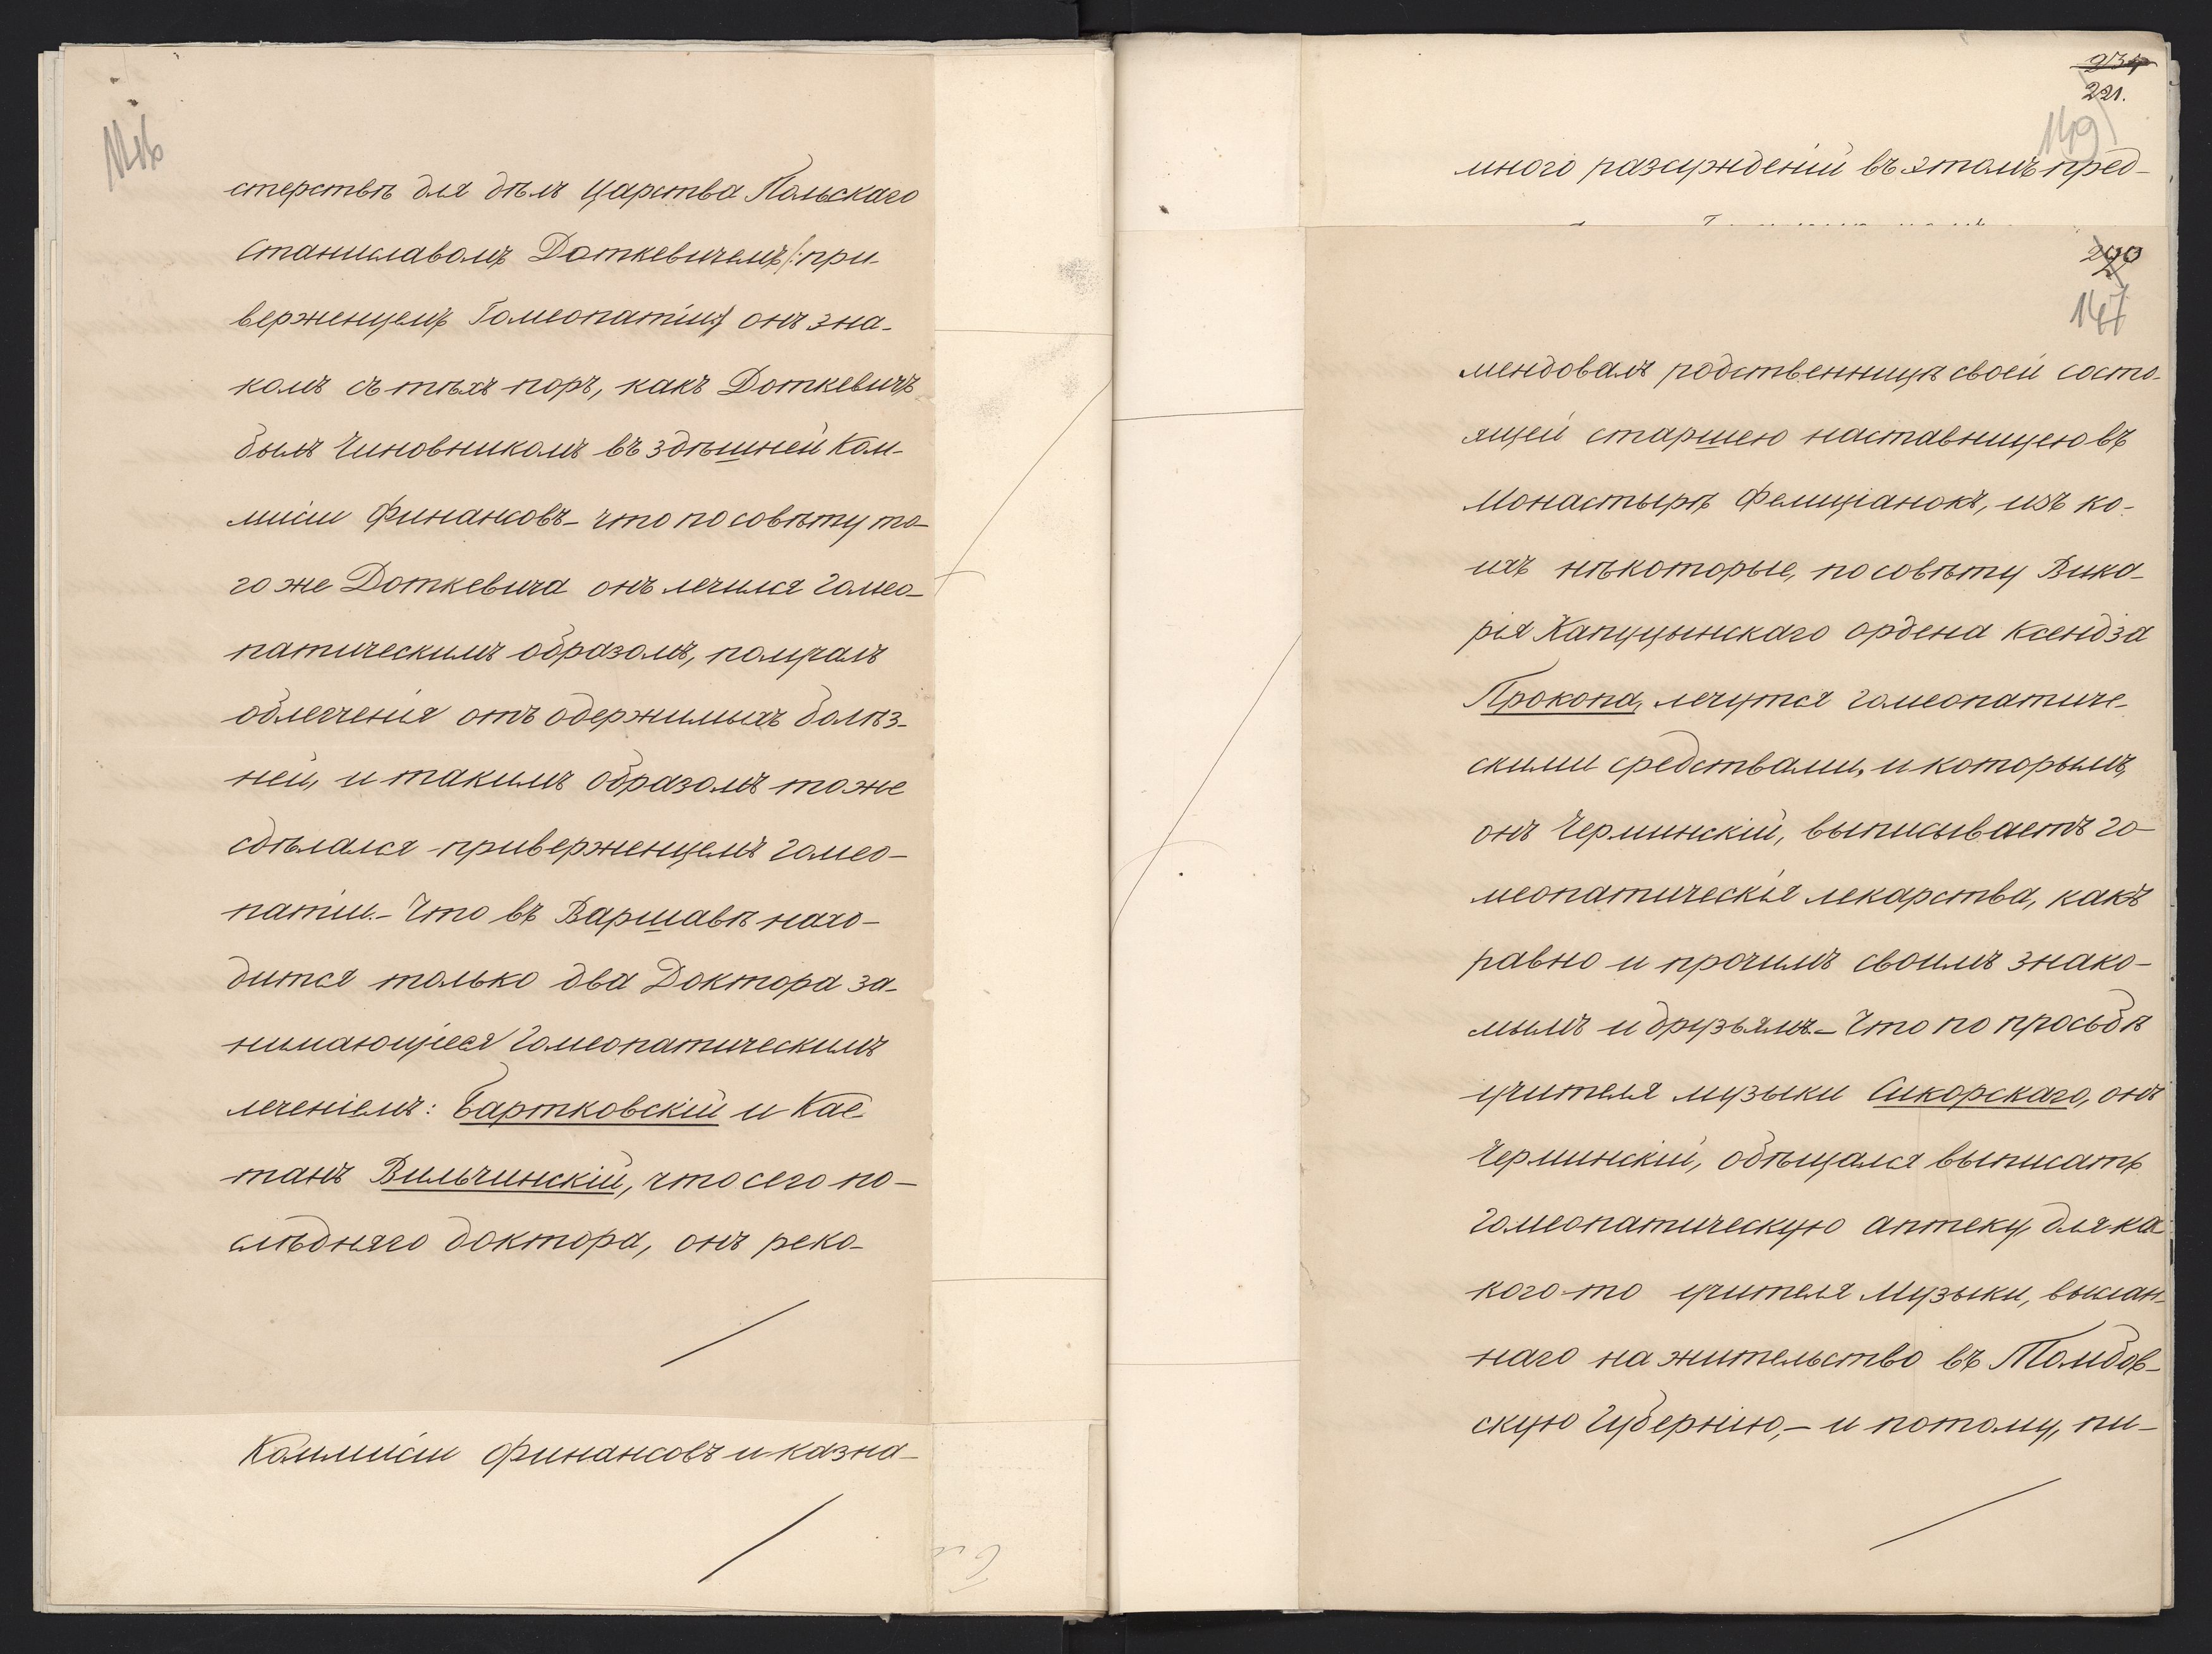 стерствѣ для дѣлъ Царства Польскаго
Станиславомъ Доткевичемъ /:при-
верженцемъ Гомеопатіи:/ онъ зна-
комъ съ тѣхъ поръ, какъ Доткевичъ
былъ Чиновникомъ въ здѣшней Ком-
мисіи Финансовъ – что по совѣту то-
го же Доткевича онъ лечился гомео-
патическимъ образомъ, получалъ
облегченія отъ одержимыхъ болѣз-
ней, и такимъ образомъ тоже
сдѣлался приверженцемъ гомео-
патіи. – Что въ Варшавѣ нахо-
дится только два Доктора за-
нимающіеся Гомеопатическимъ
леченіемъ: Бартковскій и Кае-
танъ Вильчинскій, что сего по-
слѣдняго доктора, онъ реко-
Коммисіи Финансовъ и казна-
234
221.
149
много разсужденій въ этомъ пред-
220
147
мендовалъ родственницѣ своей состо-
ящей старшею наставницею въ
Монастырѣ Фелиціанокъ, изъ ко-
ихъ нѣкоторые, по совѣту Вика-
рія Капуцынскаго ордена Ксендза
Прокопа, лечутся гомеопатиче-
скими средствами, и которымъ,
онъ Черминскій, выписываетъ го-
меопатическія лекарства, какъ
равно и прочимъ своимъ знако-
мымъ и друзьямъ. – Что по просьбѣ
учителя музыки Сикорскаго, онъ
Черминскій, обѣщался выписать
Гомеопатическую аптеку, для ка-
кого-то учителя Музыки, выслан-
наго на жительство въ Тамбов-
скую Губернію, – и потому, пи-